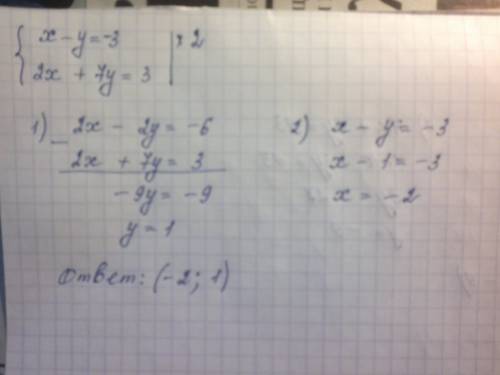 x - y = -3 | * 2
2x + 7y = 3
1) 2x - 2y = -6
- 2x + 7y = 3
-9y = -9
y = 1
2) x - y = -3
x - 1 = -3
x = -2
Ответ: (-2; 1)